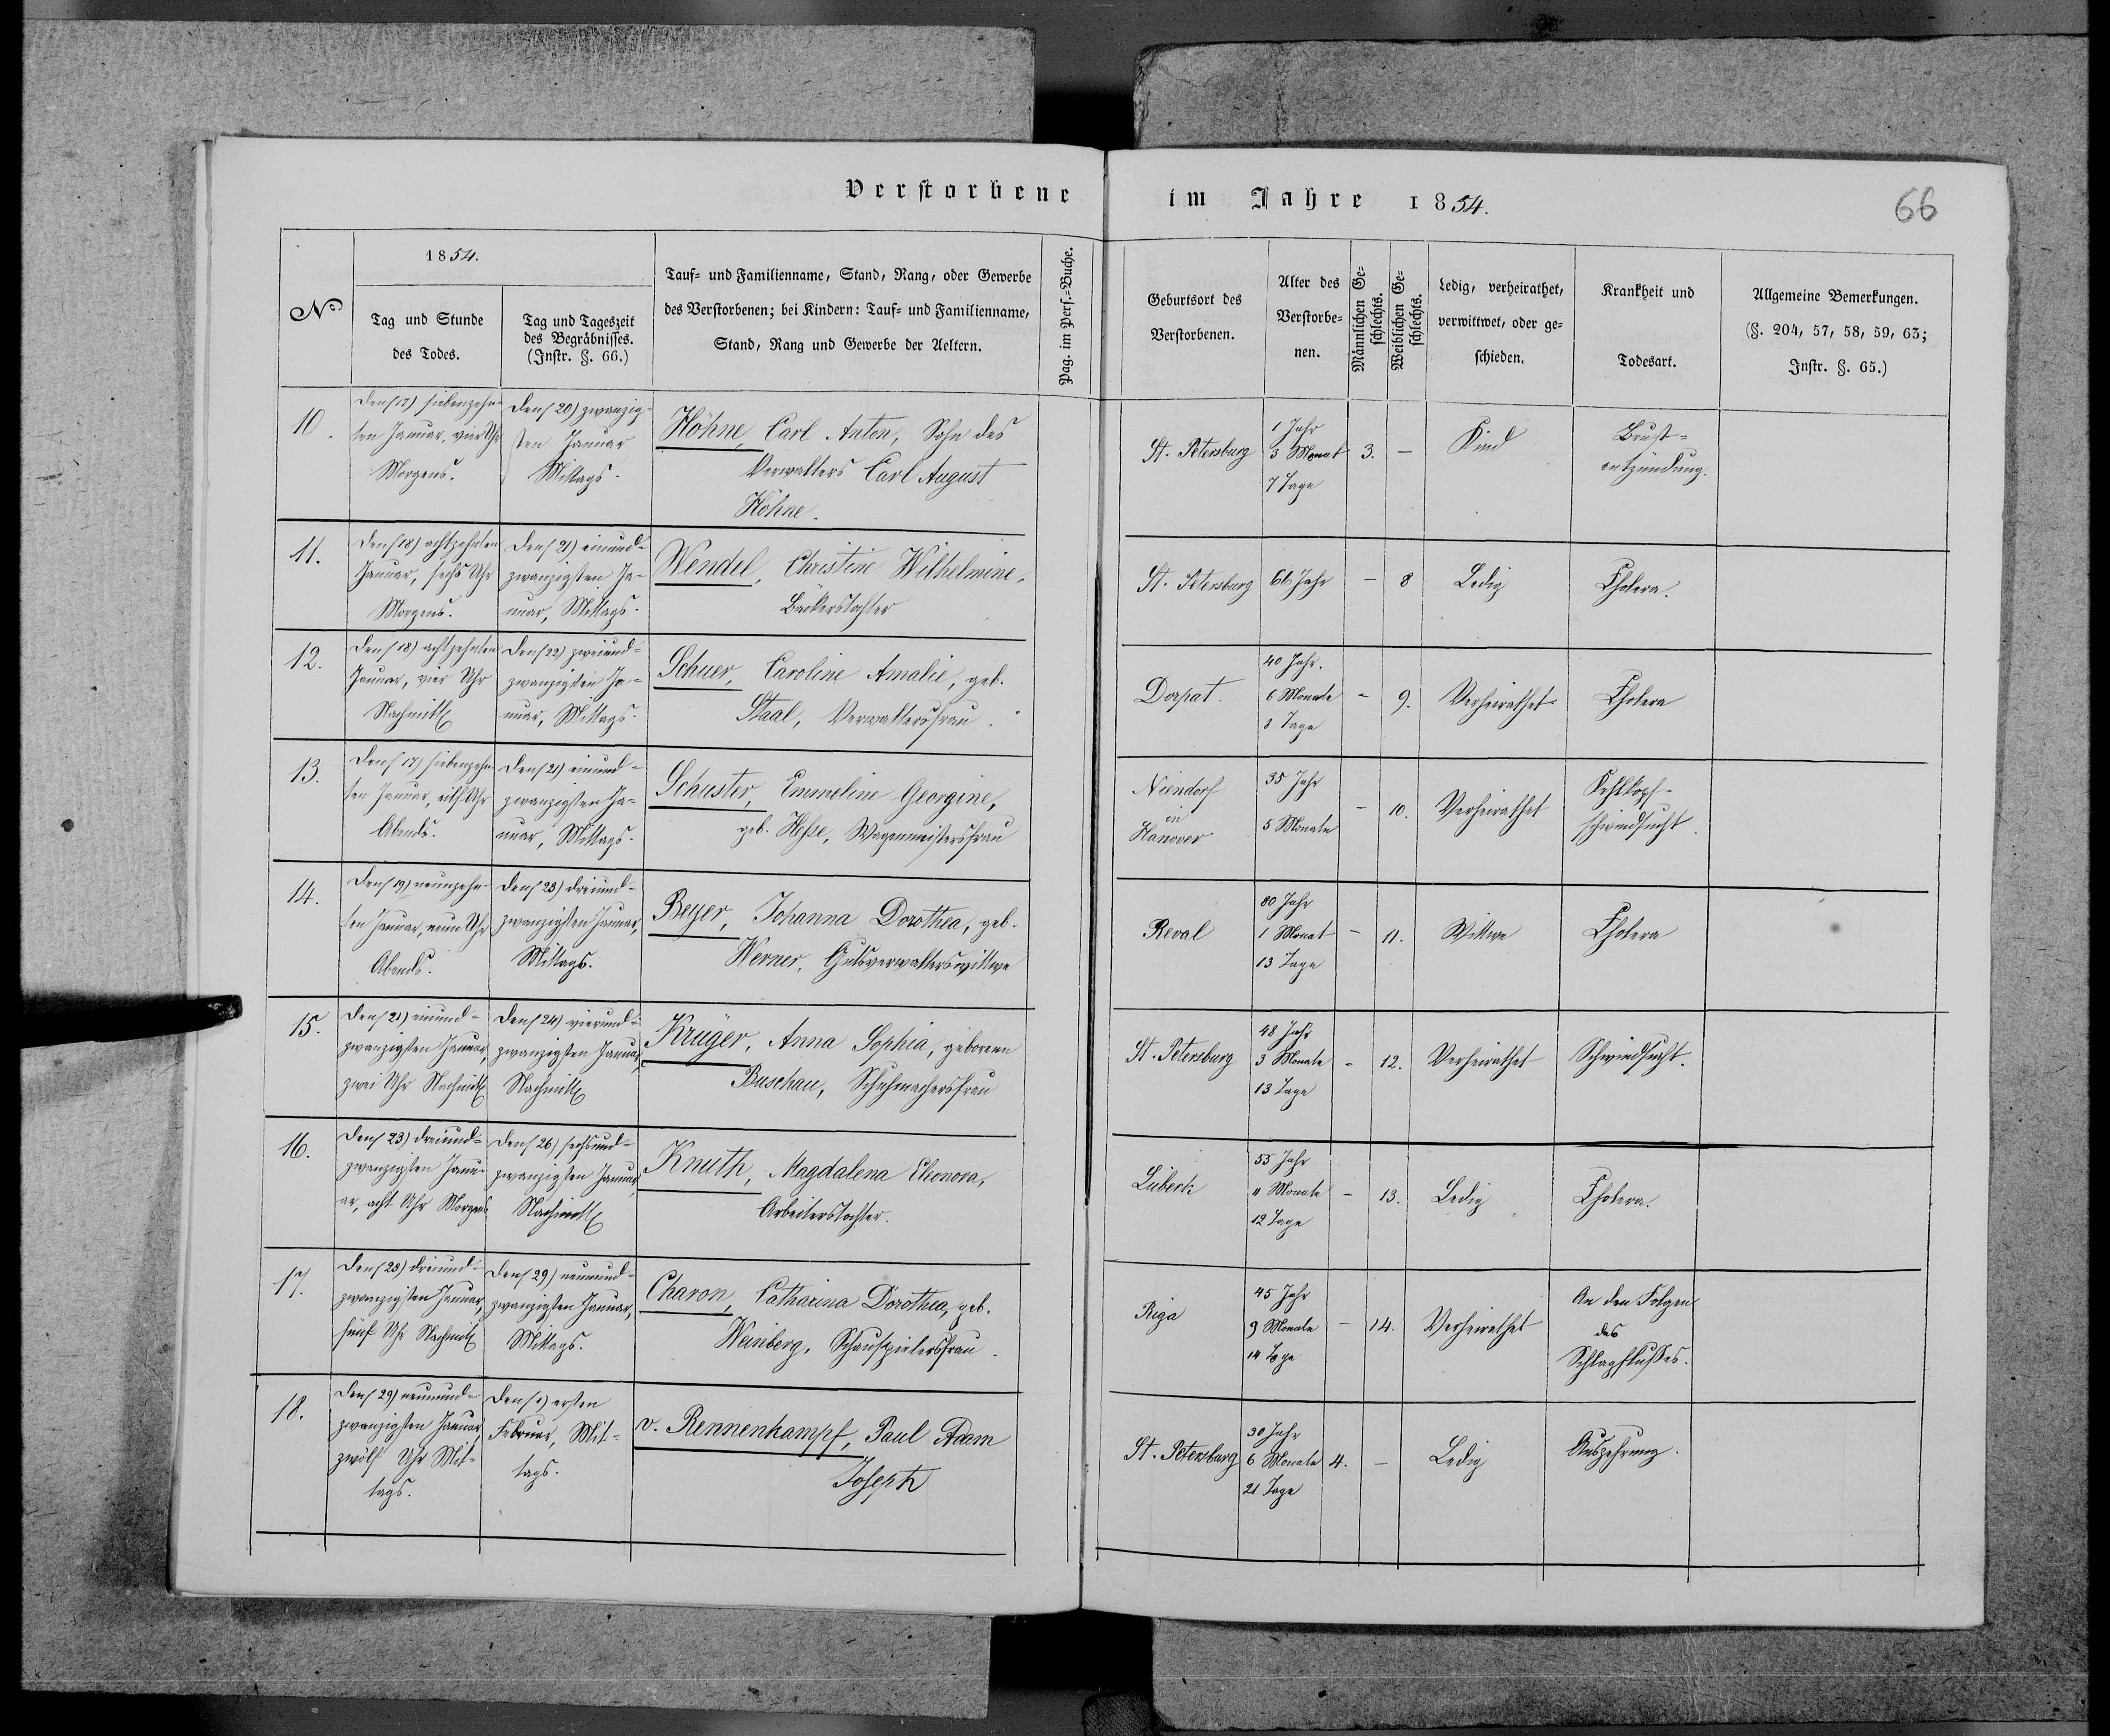 Verstorbene im Jahre 1854.
66
No
1854.
Tag und Stunde
des Todes.
Tag und Tageszeit
des Begräbnisses.
(Instr. §. 66.)
Tauf- und Familienname, Stand, Rang, oder Gewerbe
des Verstorbenen; bei Kindern: Tauf- und Familienname,
Stand, Rang und Gewerbe der Aeltern.
Pag. im Pers.-Buche.
Geburtsort des
Verstorbenen.
Alter des
Verstorbe-
nen.
Männlichen Ge-
schlechts.
Weiblichen Ge-
schlechts.
Ledig, verheirathet,
verwittwet, oder ge-
schieden.
Krankheit und
Todesart.
Allgemeine Bemerkungen.
(§. 204, 57, 58, 59, 63;
Instr. §. 65.)
10.
Den (17) siebenzehn-
ten Januar, vier Uhr
Morgens.
Den (20) zwanzig-
sten Januar
Mittags.
Höhne, Carl Anton, Sohn des
Verwalters Carl August
Höhne.
St. Petersburg
1 Jahr
3 Monat
7 Tage
3.
–
Kind
Brust-
entzündung.
11.
Den (18) achtzehnten
Januar, sechs Uhr
Morgens.
Den (21) einund-
zwanzigsten Ja-
nuar, Mittags.
Wendel, Christine Wilhelmine,
Bäckerstochter
St. Petersburg
66 Jahr
–
8
Ledig
Cholera.
12.
Den (18) achtzehnten
Januar, vier Uhr
Nachmitt
Den (22) zweiund-
zwanzigsten Ja-
nuar, Mittags.
Schuer, Caroline Amalie, geb.
Staal, Verwaltersfrau.
Dorpat.
40 Jahr.
6 Monate
3 Tage
–
9.
Verheirathet
Cholera
13.
Den (17) siebenzehn-
ten Januar, eilf Uhr
Abends.
Den (21) einund-
zwanzigsten Ja-
nuar, Mittags.
Schuster, Emmeline Georgine,
geb. Hesse, Wagenmeistersfrau
Niendorf
in
Hanover
35 Jahr
5 Monate
–
10.
Verheirathet
Kehlkopf-
schwindsucht.
14.
Den (19) neunzehn-
ten Januar, neun Uhr
Abends.
Den (23) dreiund-
zwanzigsten Januar,
Mittags.
Beyer, Johanna Dorothea, geb.
Werner, Gutsverwalterswittwe
Reval
80 Jahr
1 Monat
13 Tage
–
11.
Wittwe
Cholera
15.
Den (21) einund-
zwanzigsten Januar,
zwei Uhr Nachmitt
Den (24) vierund-
zwanzigsten Januar,
Nachmitt
Krüger, Anna Sophia, geborene
Buschau, Schuhmachersfrau
St. Petersburg
48 Jahr
3 Monate
13 Tage
–
12.
Verheirathet
Schwindsucht.
16.
Den (23) dreiund-
zwanzigsten Janu-
ar, acht Uhr Morgens
Den (26) sechsund-
zwanzigsten Januar,
Nachmitt
Knuth, Magdalena Eleonora,
Arbeiterstochter.
Lübeck
55 Jahr
4 Monate
12 Tage
–
13.
Ledig
Cholera.
17.
Den (23) dreiund-
zwanzigsten Januar,
fünf Uhr Nachmitt
Den (29) neunund-
zwanzigsten Januar,
Mittags.
Charon, Catharina Dorothea, geb.
Weinberg, Schauspielersfrau.
Riga
45 Jahr
9 Monate
14 Tage
–
14.
Verheirathet
An den Folgen
des
Schlagflusses.
18.
Den (29) neunund-
zwanzigsten Januar,
zwölf Uhr Mit-
tags.
Den (1) ersten
Februar, Mit-
tags.
v. Rennenkampf, Paul Adam
Joseph
St. Petersburg
30 Jahr
6 Monate
21 Tage
4.
–
Ledig
Auszehrung.